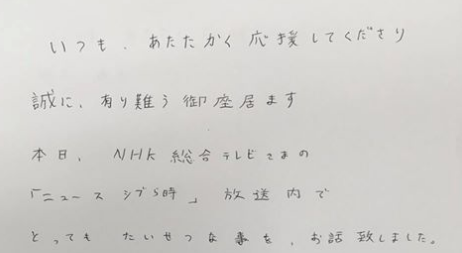 いつも、あたたかく応援してくださり
誠に、有り難う御座居ます
本日、NHK総合テレビさまの
「ニュース シブ5時」放送内で
とっても たいせつな事を、お話致しました。